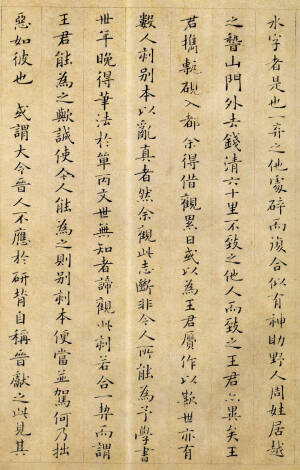 水字者是也一弃之他處碎而復合似有神助野人周姓居越
之蟄山門外去錢清六十里不致之他人而致之王君亦異矣王
君攜甎硯入都余得借觀累日或以為王君贋作以欺世亦有
數人刻別本以亂真者然余觀此志斷非今人所能為予學書
卅年晚得筆法於單丙文世無知者諦觀此刻若合一契而謂
王君能為之歟誠使今人能為之則別刻本便當並駕何乃拙
惡如彼也 或謂大令晉人不應於研背自稱晉獻之此見其